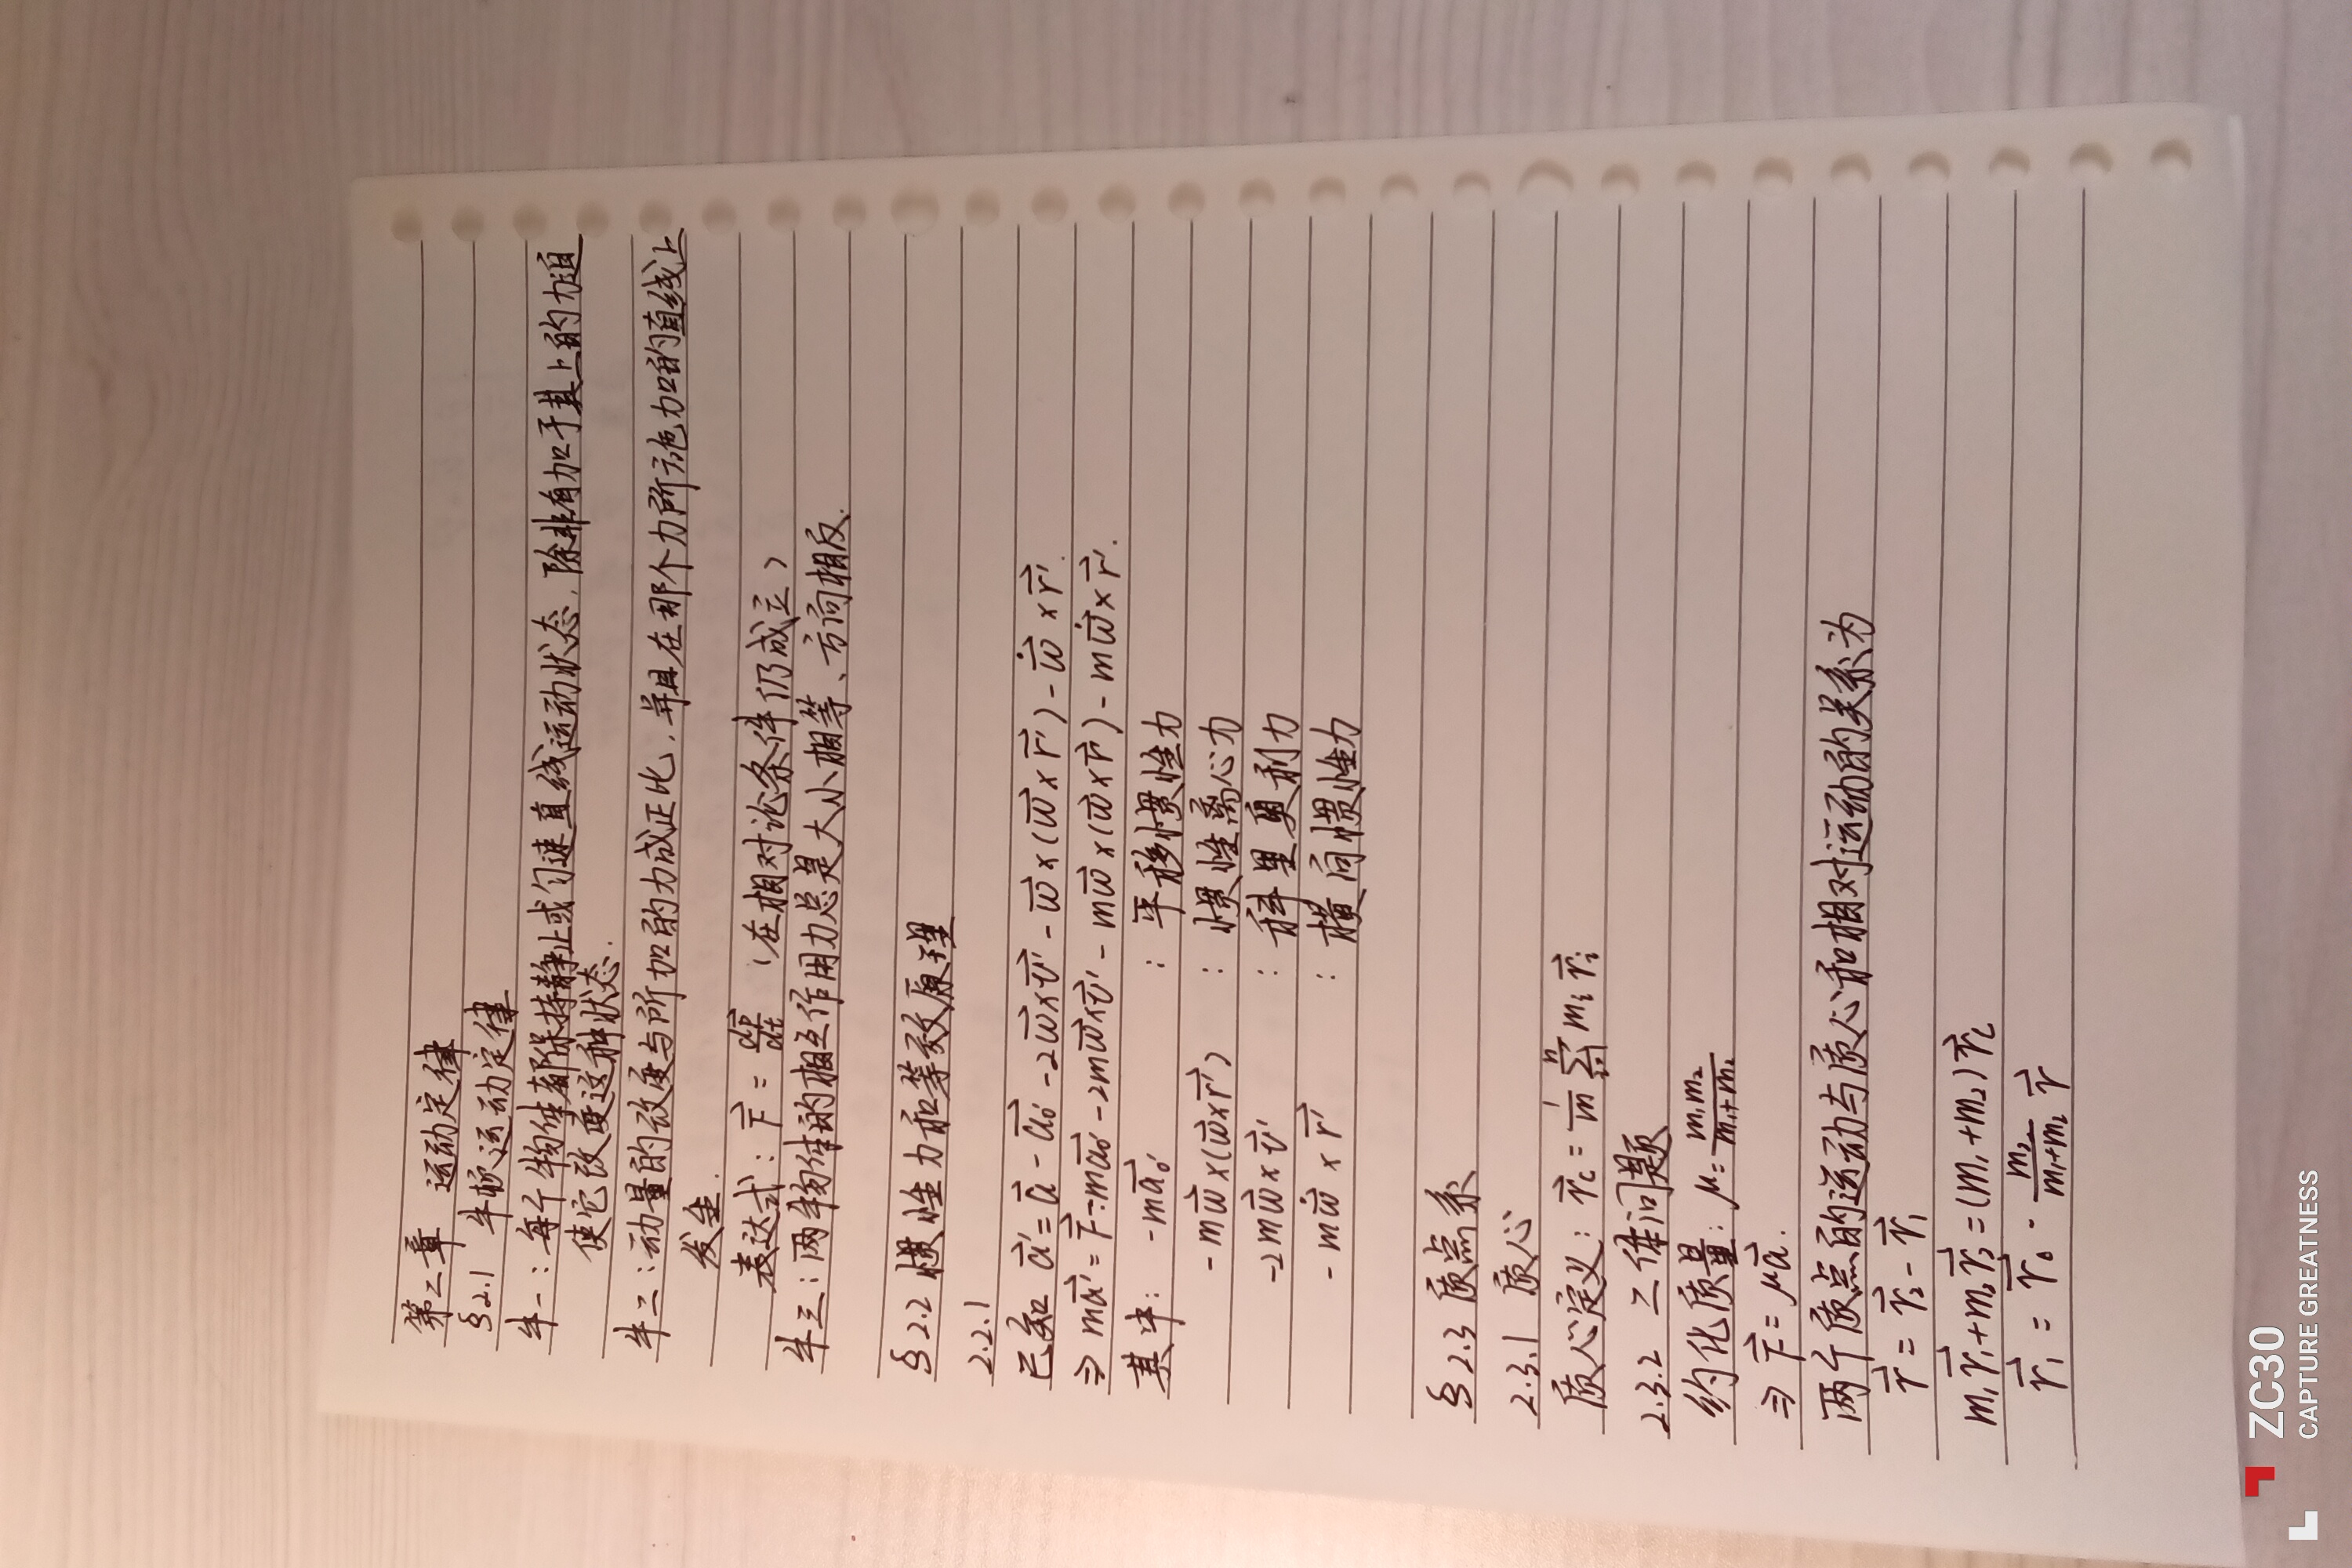 第二章 运动定律
§2.1 牛顿运动定律
牛一：每个物体都保持静止或匀速直线运动状态，除非有加于其上的力迫
使它改变这种状态.
牛二：动量的改变与所加的力成正比，并且在那个力所施加的直线上
发生.
表达式：F⃗ = dp⃗/dt （在相对论条件仍成立）
牛三：两个物体的相互作用力总是大小相等、方向相反.
§2.2 惯性力和等效原理
2.2.1
已知 a⃗' = a⃗ - a⃗₀' - 2ω⃗×v⃗' - ω⃗×(ω⃗×r⃗') - ω⃗̇×r⃗'.
⇒ ma⃗' = F⃗ - ma⃗₀' - 2mω⃗×v⃗' - mω⃗×(ω⃗×r⃗') - mω⃗̇×r⃗'.
其中： -ma⃗₀' ： 平移惯性力
-mω⃗×(ω⃗×r⃗') ： 惯性离心力
-2mω⃗×v⃗' ： 科里奥利力
-mω⃗̇×r⃗' ： 横向惯性力
§2.3 质点系
2.3.1 质心
质心定义：r⃗c = 1/m Σⁿᵢ₌₁ mᵢr⃗ᵢ
2.3.2 二体问题
约化质量：μ = m₁m₂/(m₁+m₂)
⇒ F⃗ = μa⃗.
两个质点的运动与质心和相对运动的关系为
r⃗ = r⃗₂ - r⃗₁
m₁r⃗₁ + m₂r⃗₂ = (m₁+m₂)r⃗c
r⃗₁ = r⃗₀ - m₂/(m₁+m₂) r⃗
ZC30
CAPTURE GREATNESS